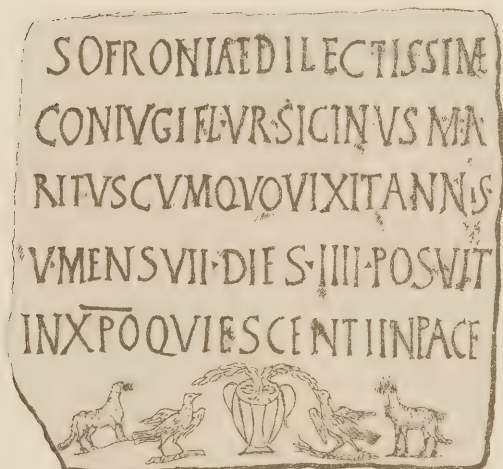 SOFRONIAE DILECTISSIMAE
CONIVGI FL·VR·SICINVS MA
RITVS CVM QVO VIXIT ANNIS
V·MENS VII·DIES·IIII·POSVIT
IN XP̅O̅ QVIESCENTI IN PACE